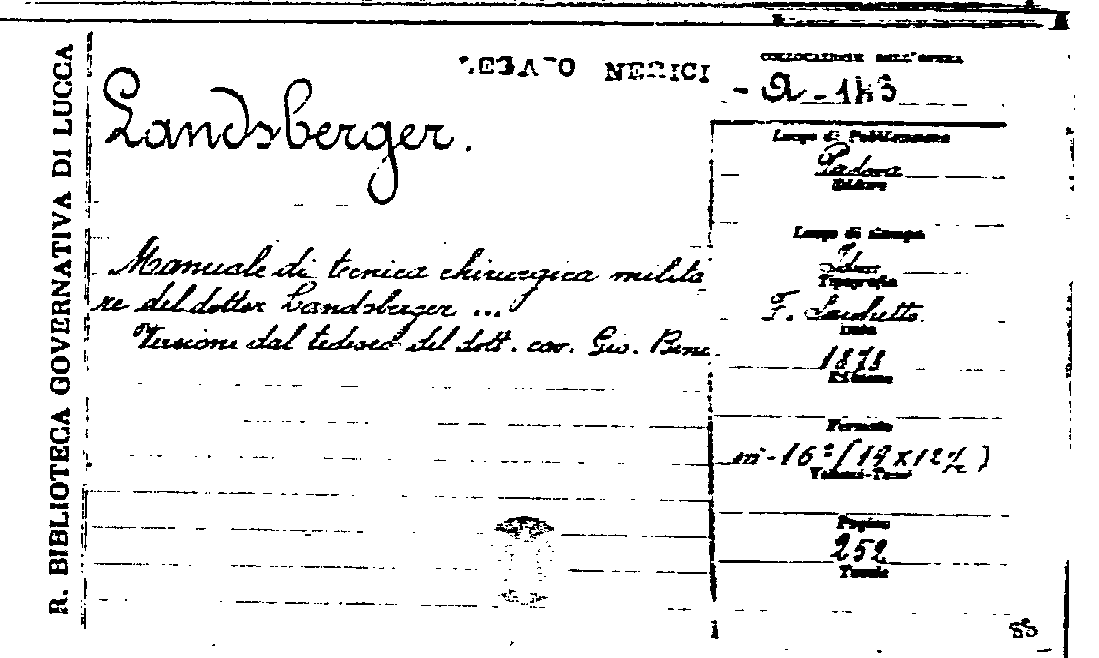 R. BIBLIOTECA GOVERNATIVA DI LUCCA
LEGATO NERICI
Landsberger.
Manuale di tecnica chirurgica milita
re del dottor Landsberger ...
Versione dal tedesco del dott. cav. Gio. Bene.
COLLOCAZIONE DELL'OPERA
- A - 143
Luogo di Pubblicazione
Padova
Editore
Luogo di Stampa
Idem
Tipografia
F. Sacchetto
Data
1878
Edizione
Formato
in-16° (19 x 12 ½)
Volumi-Tomi
Pagine
252
Tavole